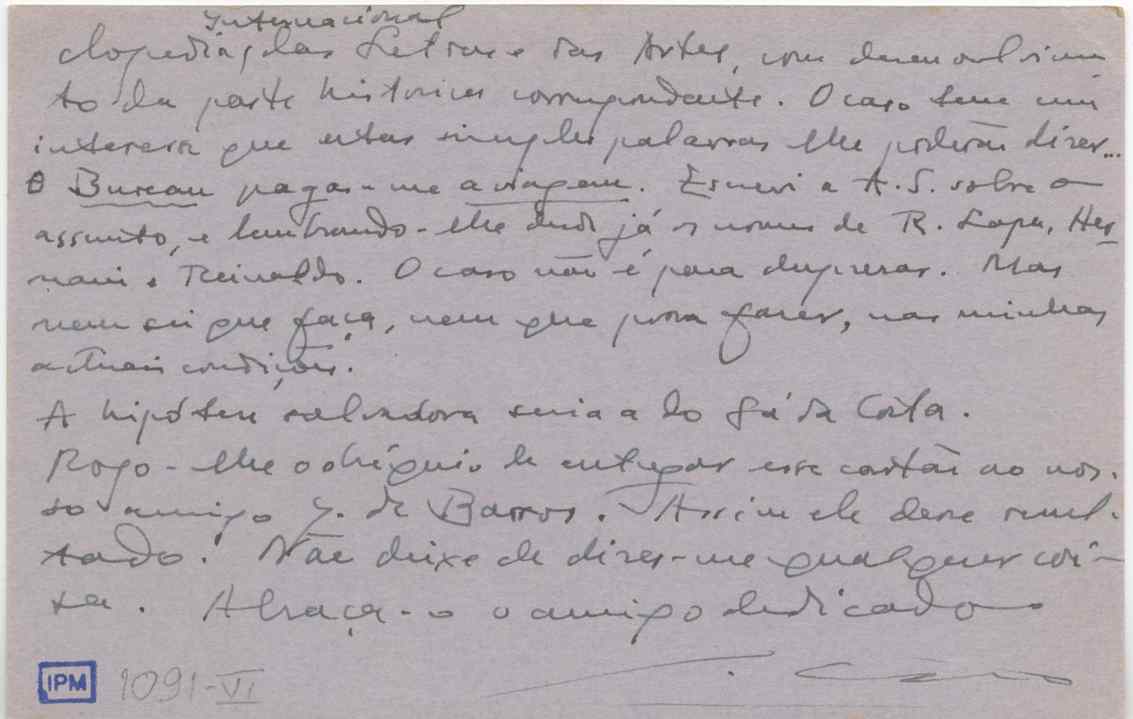 Internacional
clopedia das Letras e das Artes, com desenvolvimen-
to da parte historica correspondente. O caso tem um
interesse que estas simples palavras lhe poderão dizer...
O Bureau pagar-me a viagem. Escrevi a A.S. sobre o
assunto, e lembrando-lhe desde já os nomes de R. Lapa, Her-
nani e Reinaldo. O caso não é para desprezar. Mas
nem sei que faça, nem que possa fazer, nas minhas
actuais condições.
A hipótese salvadora seria a do Sá da Costa.
Rogo-lhe o obséquio de entregar esse cartão ao nos-
so amigo J. de Barros. Assim ele dese resul-
tado! Não deixe de dizer-me qualquer coi-
sa. Abraça-o o amigo dedicado
IPM 1091-VI